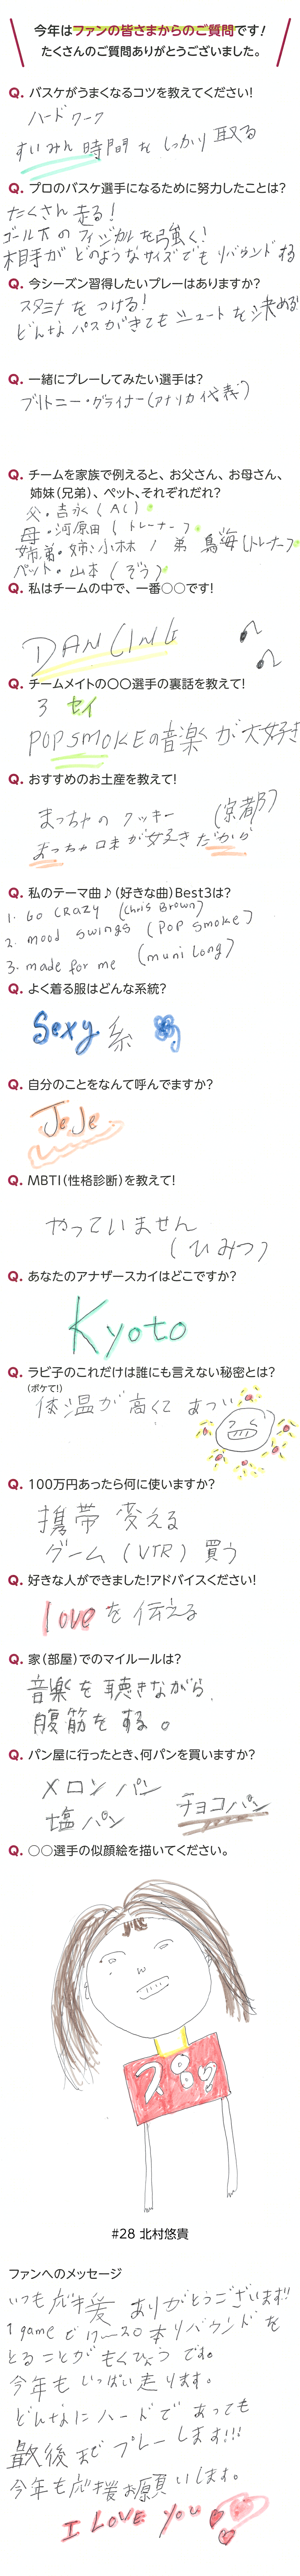 今年はファンの皆さまからのご質問です!
たくさんのご質問ありがとうございました。
Q. バスケがうまくなるコツを教えてください!
ハードワーク
すいみん時間をしっかり取る
Q. プロのバスケ選手になるために努力したことは?
たくさん走る!
ゴール下のフィジカルを強く!
相手がどのようなサイズでもリバウンドする
Q. 今シーズン習得したいプレーはありますか?
スタミナをつける!
どんなパスがきてもシュートを決める!
Q. 一緒にプレーしてみたい選手は?
ブリトニー・グライナー(アメリカ代表)
Q. チームを家族で例えると、お父さん、お母さん、
姉妹(兄弟)、ペット、それぞれだれ?
父・吉永(AC)
母・河原田(トレーナー)
姉弟・姉:小林 / 弟 鳥海(トレーナー)
ペット・山本(ぞう)
Q. 私はチームの中で、一番○○です!
DANCING
Q. チームメイトの〇〇選手の裏話を教えて!
3 セイ
POP SMOKEの音楽が大好き
Q. おすすめのお土産を教えて!
まっちゃのクッキー (京都)
まっちゃ味が好きだから
Q. 私のテーマ曲♪(好きな曲)Best3は?
1. Go CRAZY (Chris Brown)
2. mood swings (POP Smoke)
3. made for me (muni Long)
Q. よく着る服はどんな系統?
Sexy 系
Q. 自分のことをなんて呼んでますか?
JeJe
Q. MBTI(性格診断)を教えて!
やっていません
(ひみつ)
Q. あなたのアナザースカイはどこですか?
Kyoto
Q. ラビ子のこれだけは誰にも言えない秘密とは?
(ボケて!)
体温が高くてあつい
Q. 100万円あったら何に使いますか?
携帯 変える
ゲーム (VTR) 買う
Q. 好きな人ができました!アドバイスください!
loveを伝える
Q. 家(部屋)でのマイルールは?
音楽を聴きながら、
腹筋をする。
Q. パン屋に行ったとき、何パンを買いますか?
メロンパン
塩パン チョコパン
Q. ○○選手の似顔絵を描いてください。
#28 北村悠貴
ファンへのメッセージ
いつも応援ありがとうございます!!
1gameで17〜20本リバウンドを
とることがもくひょうです。
今年もいっぱい走ります。
どんなにハードであっても
最後までプレーします!!!
今年も応援お願いします。
I LOVE YOU